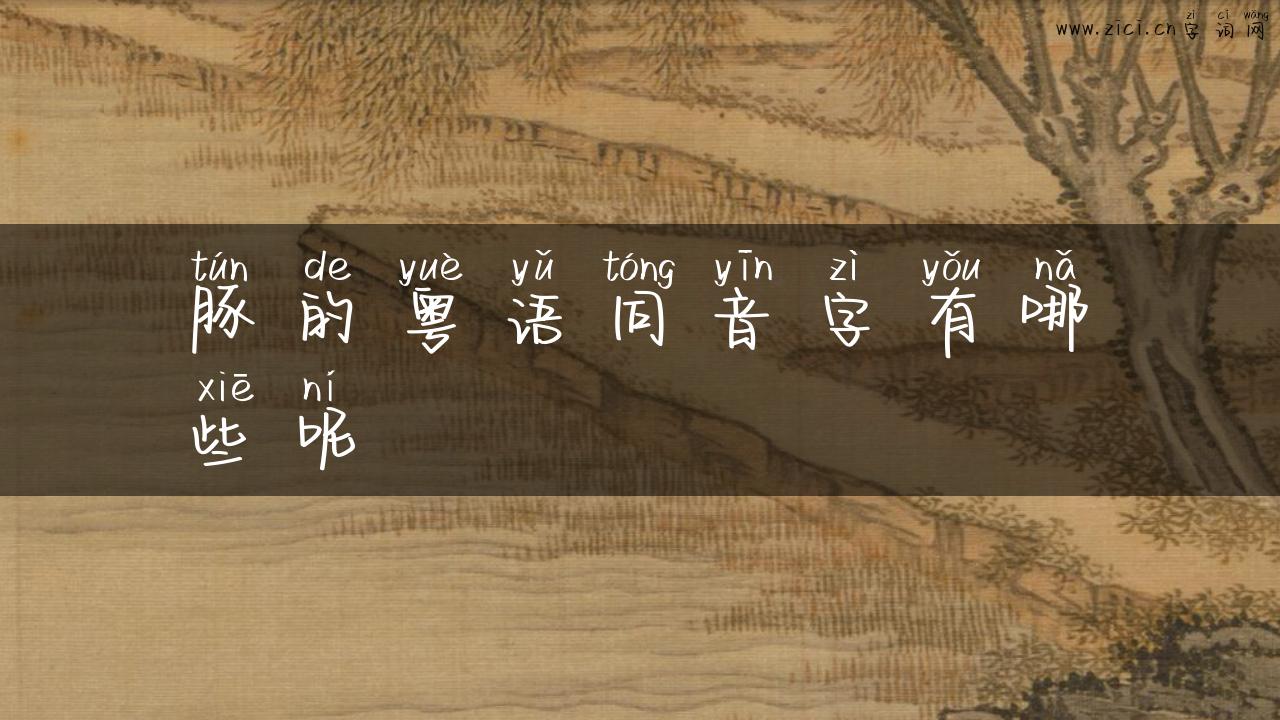 zì cí wǎng
www.zici.cn字词网
tún de yuè yǔ tóng yīn zì yǒu nǎ
豚的粤语同音字有哪
xiē ní
些呢